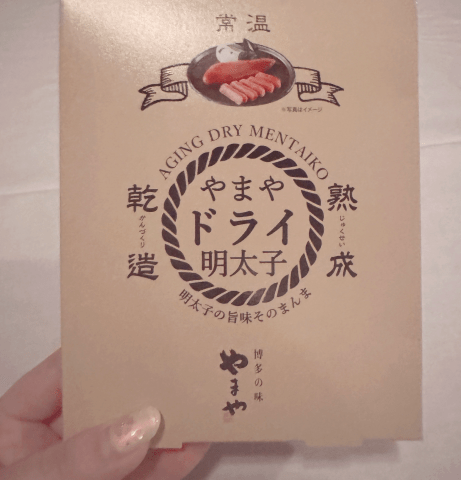 常温
※写真はイメージ
AGING DRY MENTAIKO
乾造
がんづくり
やまや
ドライ
明太子
熟成
じゅくせい
明太子の旨味そのまんま
博多の味
やまや